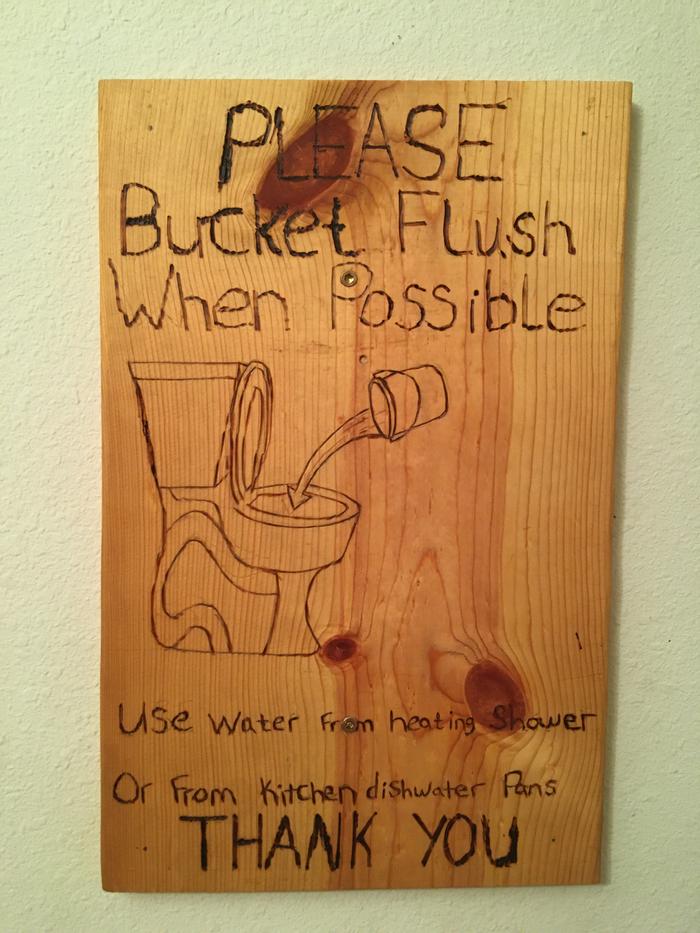 PLEASE
Bucket Flush
When Possible
Use Water From heating Shower
Or From Kitchen dishwater Pans
THANK YOU